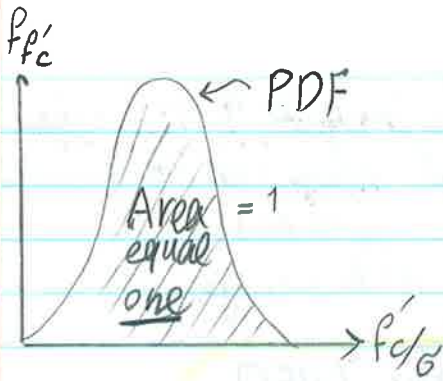 f_f'c
PDF
Area = 1
equal
one
f'c/σ